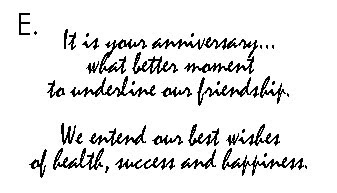 E.
It is your anniversary...
what better moment
to underline our friendship.
We entend our best wishes
of health, success and happiness.